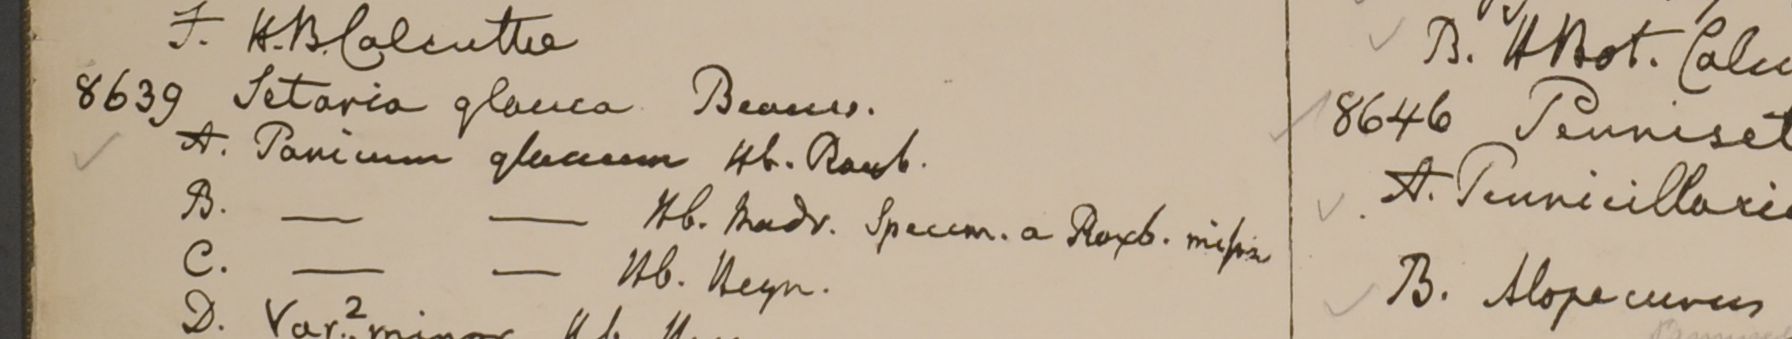 F. H.B. Calcutta
8639 Setaria glauca Beauv.
A. Panicum glaucum Hb. Roxb.
B. — — Hb. Madr. Specim. a Roxb. missa
C. — — Hb. Heyn.
D. Var. 2 minor Hb.
B. H Bot. Calcu
8646 Penniset
A. Pennicillaria
B. Alopecurus